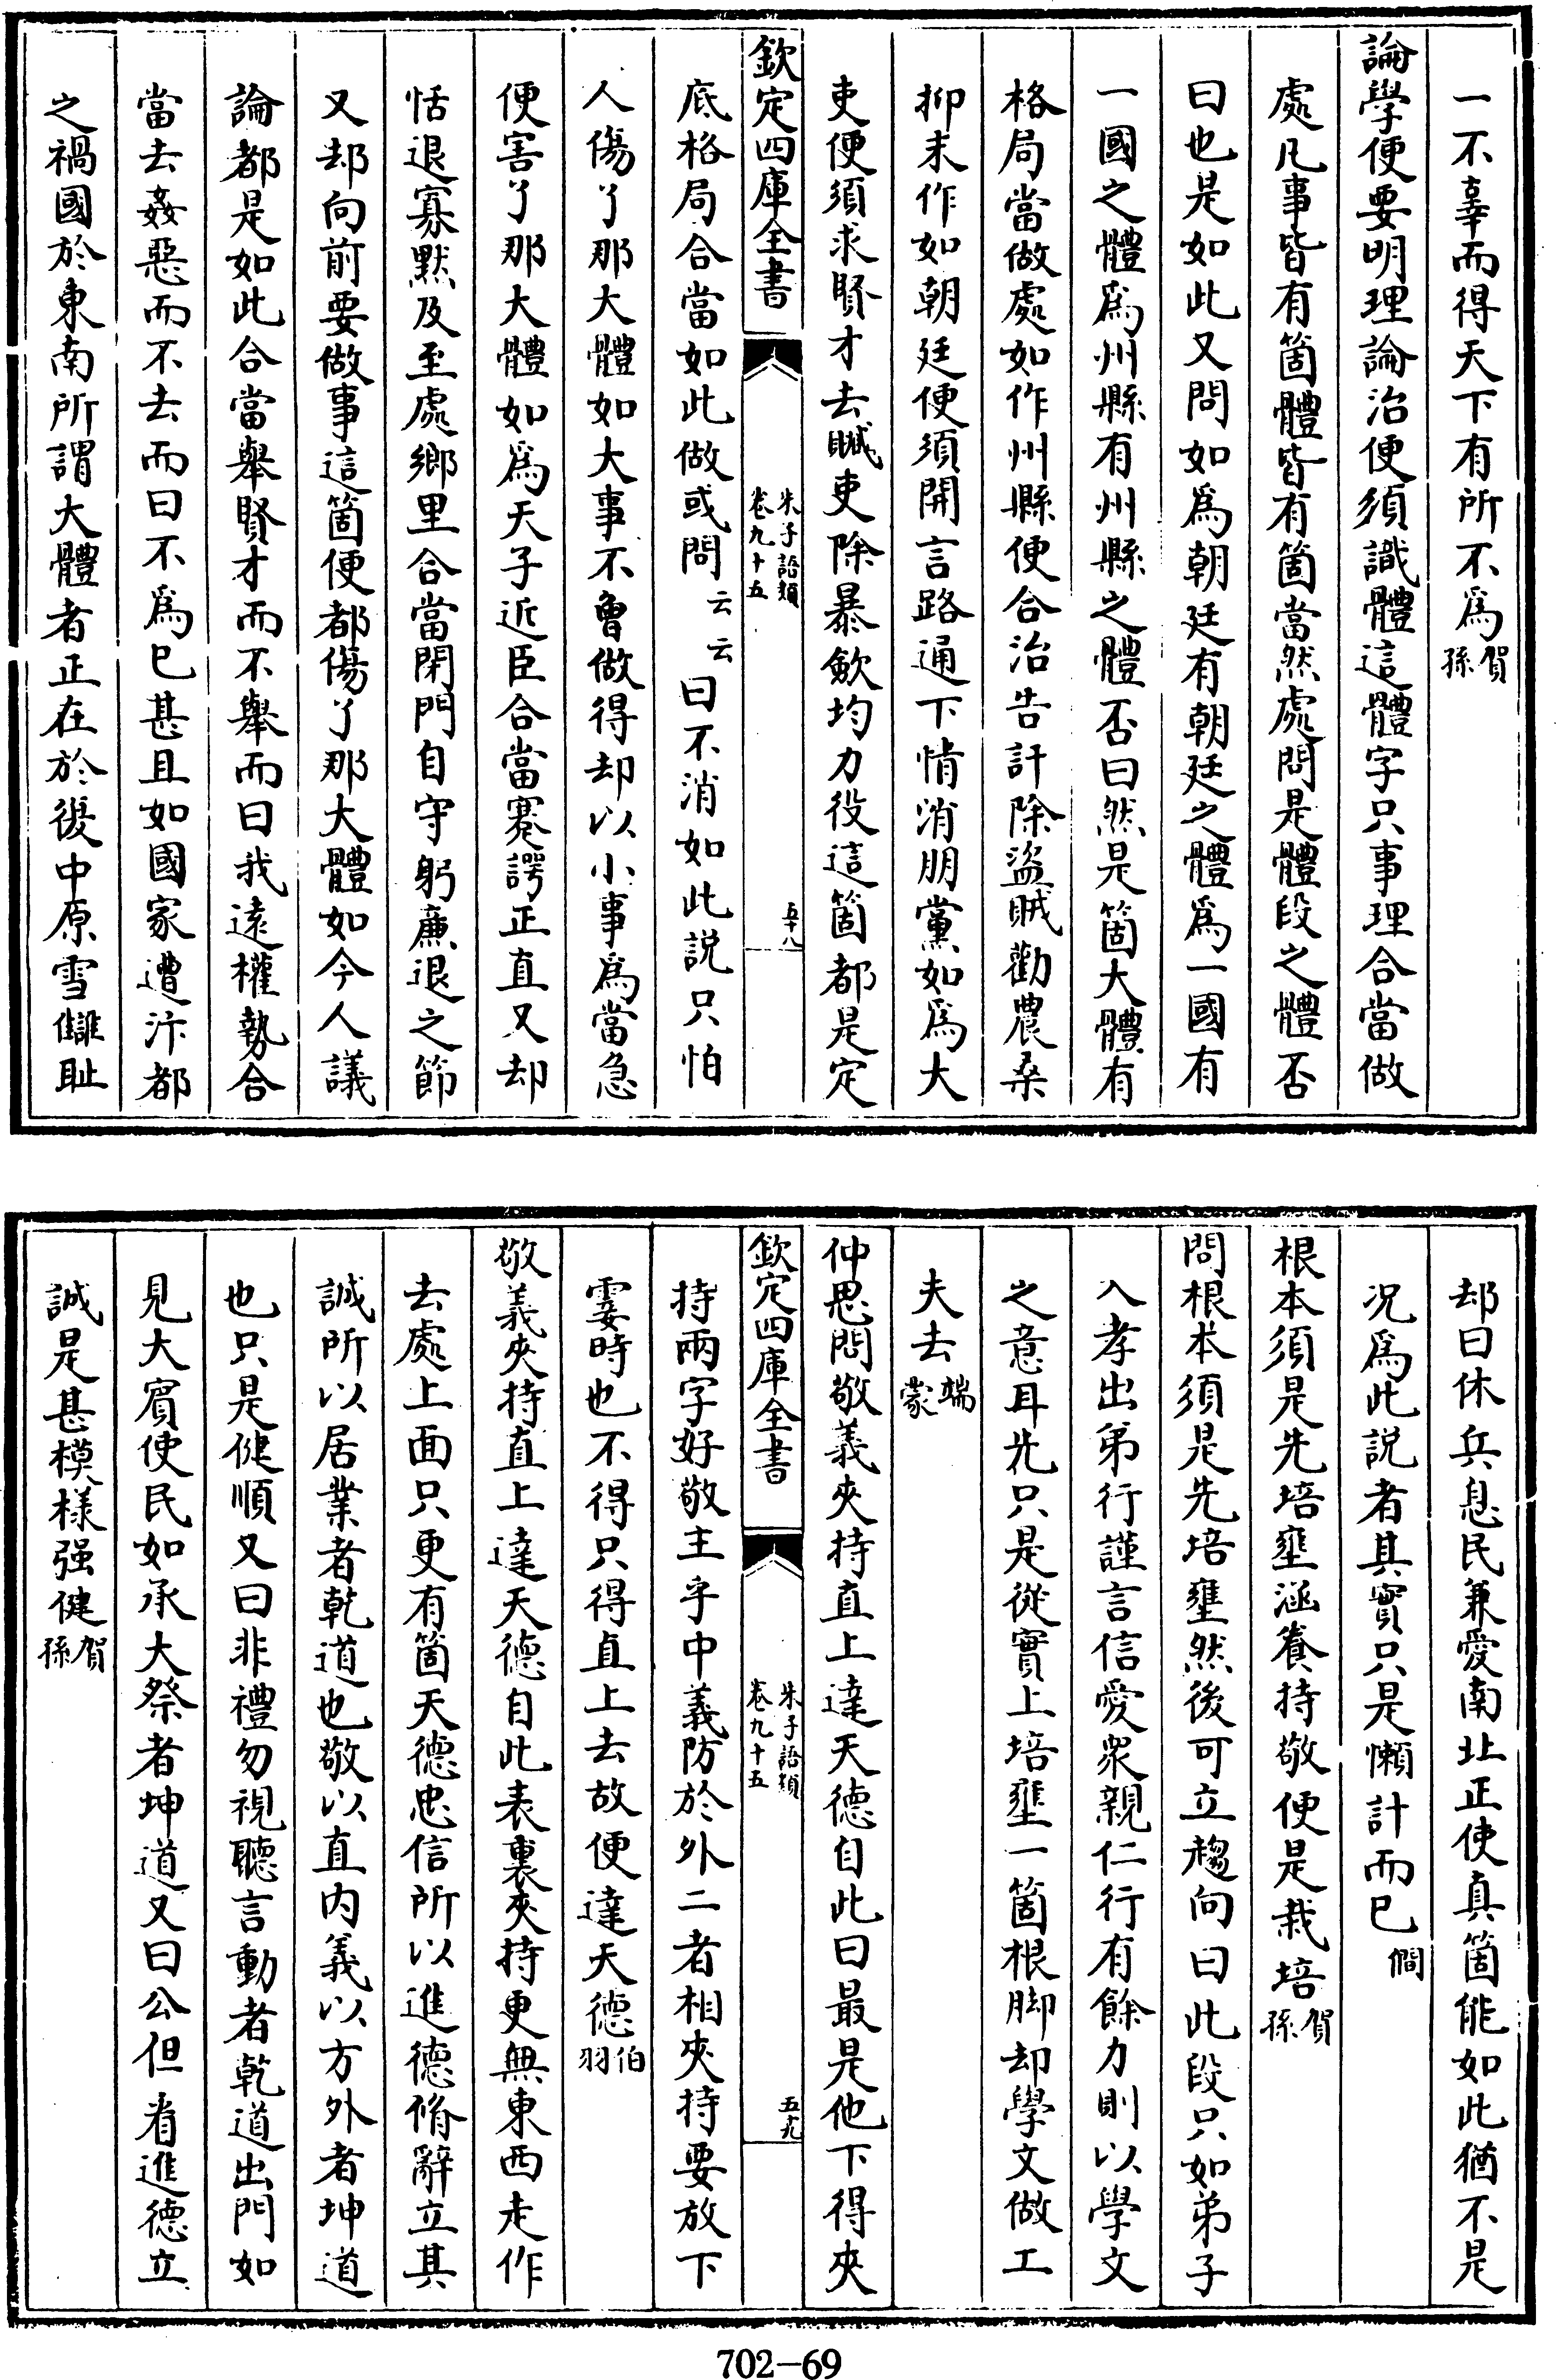 一不辜而得天下有所不為賀孫
論學便要明理論治便須識體這體字只事理合當做
處凡事皆有箇體皆有箇當然處問是體段之體否
曰也是如此又問如為朝廷有朝廷之體為一國有
一國之體為州縣有州縣之體否曰然是箇大體有
格局當做處如作州縣便合治告訐除盜賊勸農桑
抑末作如朝廷便須開言路通下情消朋黨如為大
吏便須求賢才去贓吏除暴斂均力役這箇都是定
欽定四庫全書 朱子語類卷九十五 五十八
底格局合當如此做或問云云曰不消如此説只怕
人傷了那大體如大事不曾做得却以小事為當急
便害了那大體如為天子近臣合當蹇諤正直又却
恬退寡默及至處鄉里合當閉門自守躬廉退之節
又却向前要做事這箇便都傷了那大體如今人議
論都是如此合當舉賢才而不舉而曰我逺權勢合
當去姦惡而不去而曰不為已甚且如國家遭汴都
之禍國於東南所謂大體者正在於復中原雪讎恥
却曰休兵息民兼愛南北正使真箇能如此猶不是
况為此説者其實只是懶計而已僩
根本須是先培壅涵養持敬便是栽培賀孫
問根本須是先培壅然後可立趨向曰此段只如弟子
入孝出弟行謹言信愛衆親仁行有餘力則以學文
之意耳先只是從實上培壅一箇根脚却學文做工
夫去端蒙
仲思問敬義夾持直上達天德自此曰最是他下得夾
欽定四庫全書 朱子語類卷九十五 五十九
持兩字好敬主乎中義防於外二者相夾持要放下
霎時也不得只得直上去故便達天德伯羽
敬義夾持直上達天德自此表裏夾持更無東西走作
去處上面只更有箇天德忠信所以進德脩辭立其
誠所以居業者乾道也敬以直内義以方外者坤道
也只是健順又曰非禮勿視聽言動者乾道出門如
見大賓使民如承大祭者坤道又曰公但看進德立
誠是甚模様强健賀孫
702-69